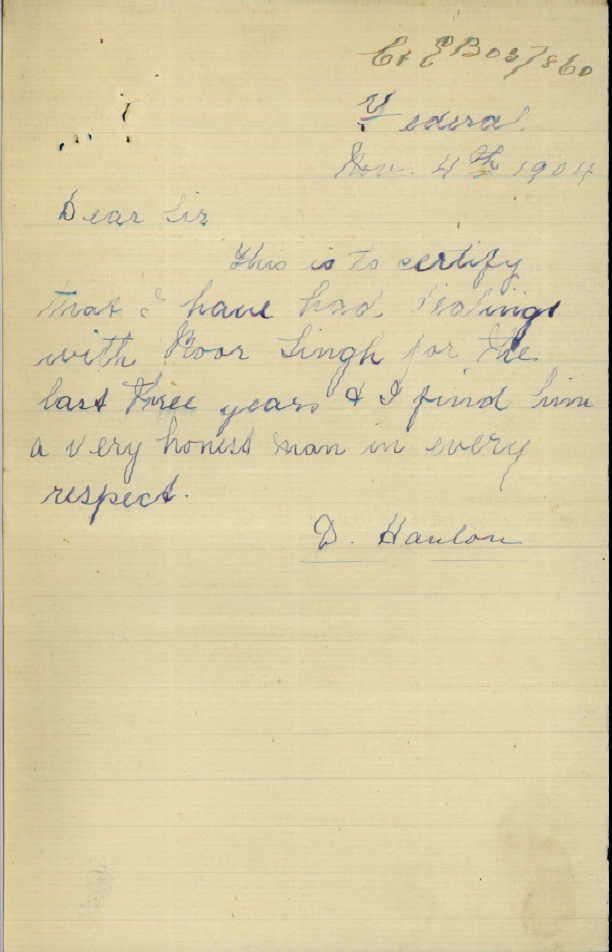 Federal.
Nov. 4th 1904
Dear Sir
This is to certify
that I have had dealings
with Noor Singh for the
last three years & I find him
a very honest man in every
respect.
D. Hanlon